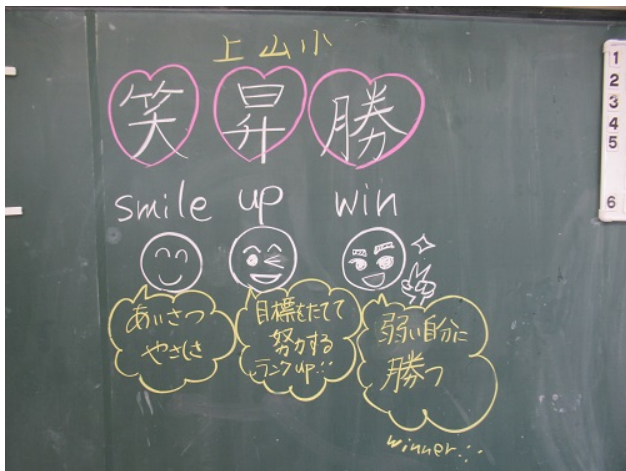 上山小
笑 昇 勝
smile up win
あいさつ
やさしさ
目標をたてて
努力する
ランクup!!
弱い自分に
勝つ
winner...
1
2
3
4
5
6